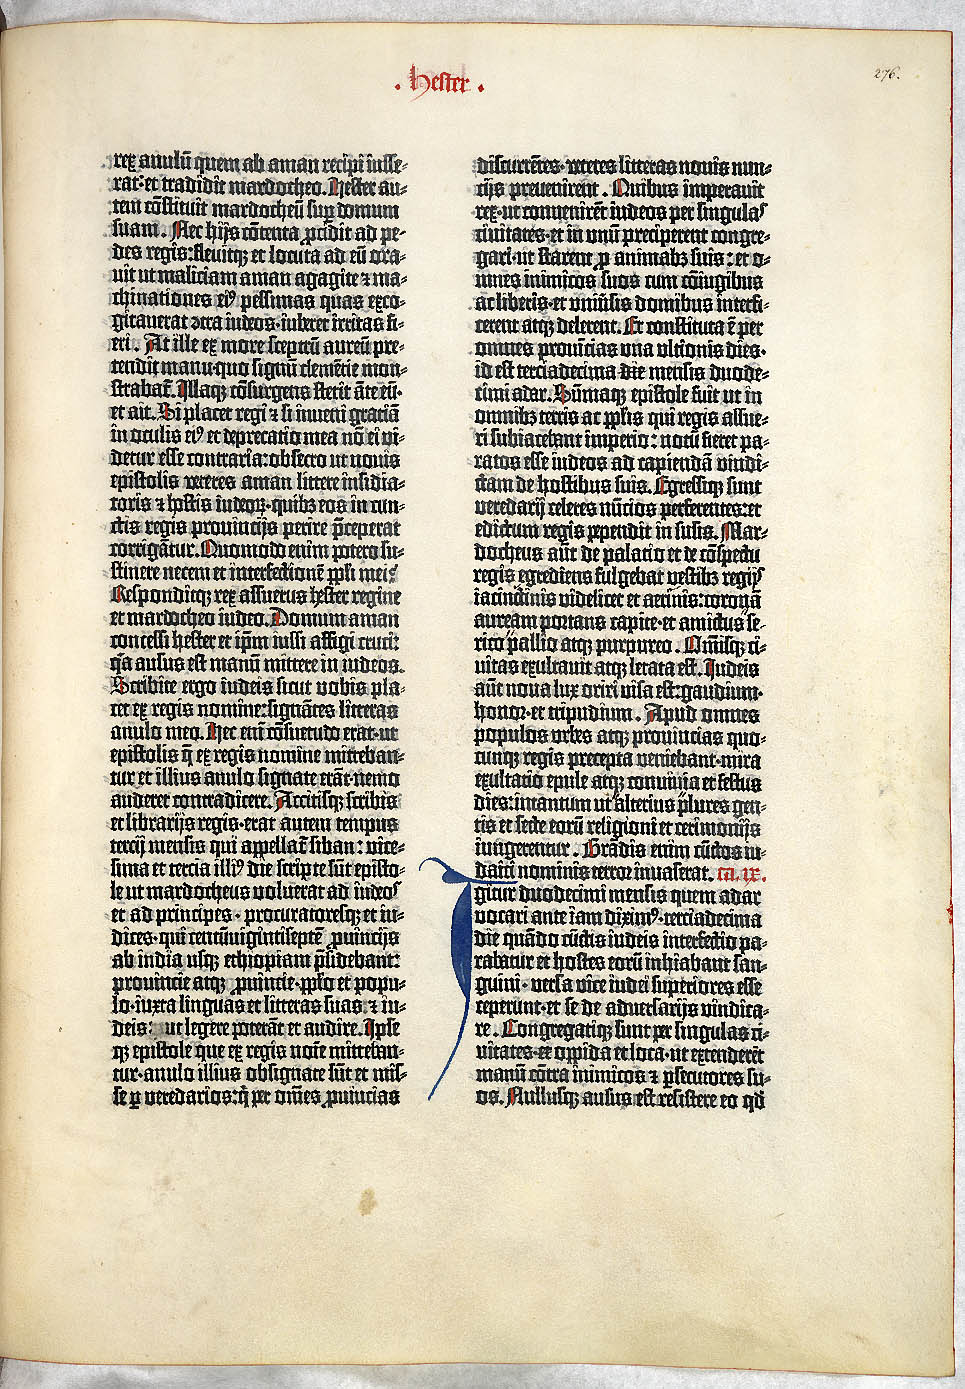 . Hester .
276.
rex anulū quem ab aman recipi iusse-
rat: et tradidit mardocheo. Hester au-
tem cōstituit mardocheū sup̄ domum
suam. Nec hijs cōtenta ꝓcidit ad pe-
des regis: fleuitqꝫ et locuta ad eū ora-
uit ut maliciam aman agagite ⁊ ma-
chinationes eiꝰ pessimas quas exco-
gitauerat ɔtra iudeos· iuberet irritas fi-
eri. At ille ex more sceptrū aureū pre-
tendit manu· quo signū clementie mon-
strabat̄. Illaqꝫ cōsurgens stetit āte eū·
et ait. Si placet regi ⁊ si inueni graciā
in oculis eiꝰ et deprecatio mea nō ei vi-
detur esse contraria: obsecro ut nouis
epistolis veteres aman littere insidia-
toris ⁊ hostis iudeoꝝ· quibꝫ eos in cun-
ctis regis prouincijs perire p̄ceperat
corrigātur. Quomodo enim potero su-
stinere necem et interfectionē ppl̄i mei?
Responditqꝫ rex assuerus hester regine
et mardocheo iudeo. Domum aman
concessi hester et ip̄m iussi affigi cruci:
q̄a ausus est manū mittere in iudeos.
Scribite ergo iudeis sicut vobis pla-
cet ex regis nomine: signātes litteras
anulo meo. Hec eni̅ cōsuetudo erat· ut
epistolis q̄ ex regis nomine mitteban-
tur et illius anulo signate erāt· nemo
auderet contradicere. Accitisqꝫ scribis
et librarijs regis· erat autem tempus
tercij mensis qui appellat̄ siban: vice-
sima et tercia illiꝰ die scripte sūt episto-
le ut mardocheus voluerat ad iudeos
et ad principes· procuratoresqꝫ et iu-
dices· qui centūuigintiseptē ꝓuincijs
ab india usqꝫ ethiopiam p̄sidebant:
prouincie atqꝫ ꝓuincie· ppl̄o et popu-
lo· iuxta linguas et litteras suas· ⁊ iu-
deis: ut legere poterāt et audire. Ipse
qꝫ epistole que ex regis noīe mitteban-
tur· anulo illius obsignate sūt et mis-
se ꝑ veredarios: q̄ per omēs ꝓuincias
discurrētes· veteres litteras nouis nun-
cijs preuenirent. Quibus imperauit
rex· ut conuenirēt iudeos per singulas
ciuitates· et in unū preciperent congre-
gari· ut starent ꝓ animabꝫ suis: et o-
mnes inimicos suos cum cōiugibus
ac liberis· et vniūsis domibus interfi-
cerent atqꝫ delerent. Et constituta ē per
omnes prouīcias una vltionis dies·
id est terciadecima die mensis duode-
cimi adar. Sūmaqꝫ epistole fuit ut in
omnibꝫ terris ac ppl̄is qui regis assue-
ri subiacebant imperio: notū fieret pa-
ratos esse iudeos ad capiendā vindi-
ctam de hostibus suis. Egressiqꝫ sunt
veredarij celeres nūcios perferentes: et
edictum regis ꝑpendit in susis. Mar-
docheus aūt de palatio et de cōspectu
regis egrediens fulgebat vestibꝫ regijs
iacinctinis videlicet et aerinis: coronā
auream portans capite· et amictus se-
rico pallio atqꝫ purpureo. Om̄isqꝫ ci-
uitas exultauit atqꝫ letata est. Iudeis
aūt noua lux oriri visa est: gaudium·
honor· et tripudium. Apud omnes
populos vrbes atqꝫ prouincias quo-
cunqꝫ regis precepta veniebant· mira
exultatio epule atqꝫ conuiuia et festus
dies: intantum ut alterius plures gen-
tis et secte eorū religioni et cerimonijs
iungerentur. Grādis enim cūctos iu-
daici nominis terror inuaserat. ca. ix.
Igitur duodecimi mensis quem adar
vocari ante iam diximꝰ· terciadecima
die quādo cūctis iudeis interfectio pa-
rabatur et hostes eorū inhiabant san-
guini· versa vice iudei superiores esse
ceperunt· et se de aduersarijs vindica-
re. Congregatiqꝫ sunt per singulas ci-
uitates· et oppida et loca· ut extenderēt
manū cōtra inimicos ⁊ ꝑsecutores su-
os. Nullusqꝫ ausus est resistere eo qd̄